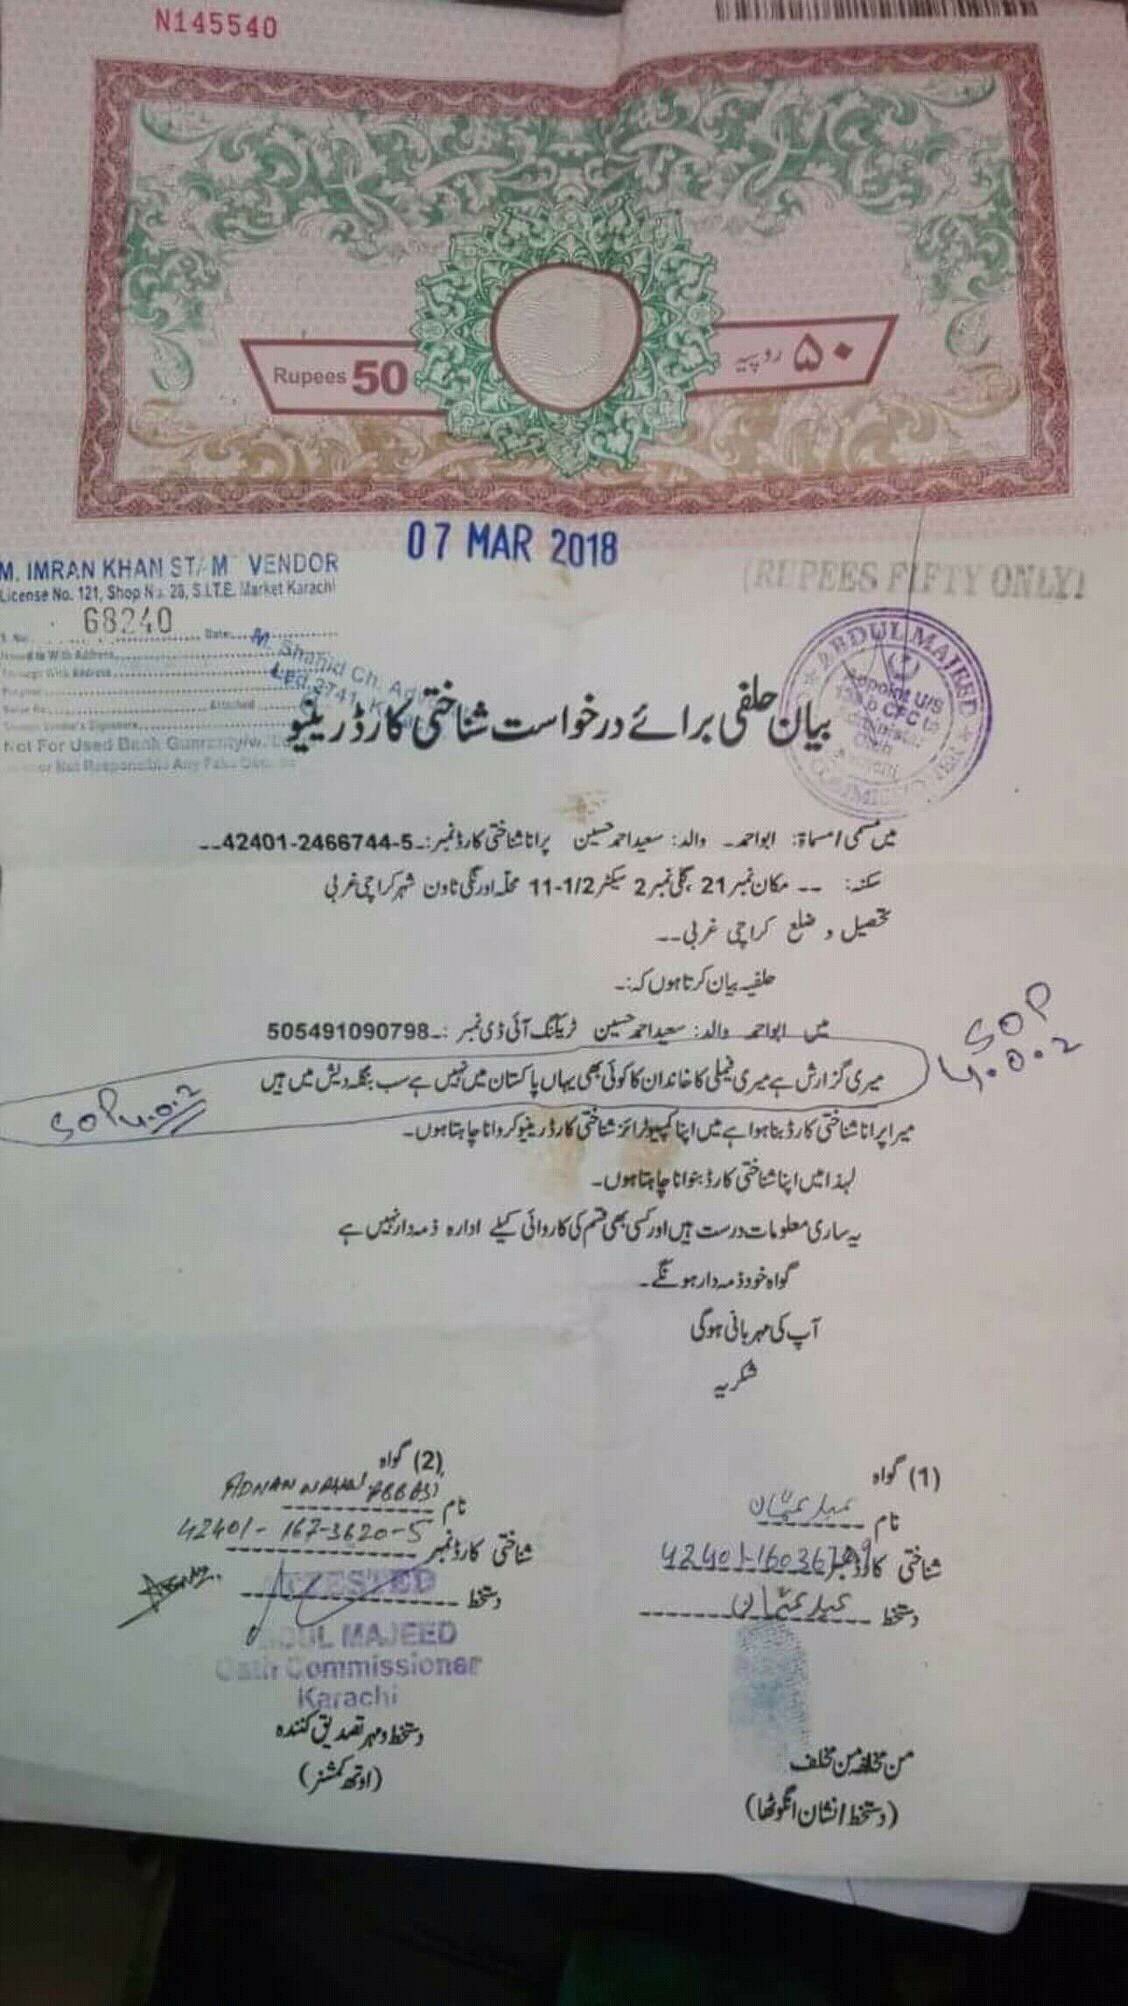 N145540
Rupees 50
۵۰ روپیہ
07 MAR 2018
(RUPEES FIFTY ONLY)
M. IMRAN KHAN VENDOR
License No. 121, Shop No. 28, S.I.T.E. Market Karachi
68240 Date:
M. Shahid Ch. Ad
Not For Used Bank
Not Responsible Any
ABDUL MAJEED
Appoint U/S
CPC to
بیان حلفی برائے درخواست شناختی کارڈ رینیو
میں مسمی / مسماۃ: ابو احمد۔ والد: سعید احمد حسین پرانا شناختی کارڈ نمبر:۔ 42401-2466744-5۔۔
سکنہ: -- مکان نمبر 21، گلی نمبر 2 سیکٹر 11-1/2 محلہ اورنگی ٹاون شہر کراچی غربی
تحصیل و ضلع کراچی غربی۔۔
حلفیہ بیان کرتا ہوں کہ:۔
میں ابو احمد والد: سعید احمد حسین ٹریکنگ آئی ڈی نمبر :۔ 505491090798
SOP
4.0.2
میری گزارش ہے میری فیملی کا خاندان کا کوئی بھی یہاں پاکستان میں نہیں ہے سب بنگلہ دیش میں ہیں
SOP 4.0.2
میرا پرانا شناختی کارڈ بنا ہوا ہے میں اپنا کمپیوٹرائز شناختی کارڈ رینیو کروانا چاہتا ہوں۔
لہذا میں اپنا شناختی کارڈ بنوانا چاہتا ہوں۔
یہ ساری معلومات درست ہیں اور کسی بھی قسم کی کاروائی کیلئے ادارہ ذمہ دار نہیں ہے
گواہ خود ذمہ دار ہونگے۔
آپ کی مہربانی ہوگی
شکریہ
(1) گواہ
نام
شناختی کارڈ نمبر
دستخط
من مخالفہ من مخلف
(دستخط / نشان انگوٹھا)
(2) گواہ
نام ADNAN ABBASI
شناختی کارڈ نمبر 42401-167-3620-5
دستخط
ATTESTED
ABDUL MAJEED
Oath Commissioner
Karachi
دستخط و مہر تصدیق کنندہ
(اوتھ کمشنر)